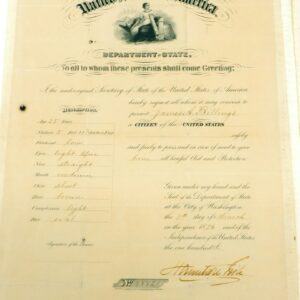 United States of America,
DEPARTMENT OF STATE,
To all to whom these presents shall come, Greeting:
I the undersigned, Secretary of State of the United States of America
hereby request all whom it may concern to
permit James A. Billings
a CITIZEN of the UNITED STATES
safely
and freely to pass and in case of need to give
him all lawful Aid and Protection
DESCRIPTION
Age 25 Years
Stature 5
Forehead low
Eyes light blue
Nose straight
Mouth medium
Chin short
Hair brown
Complexion light
Face oval
Signature of the Bearer
Given under my hand and the
Seal of the Department of State
at the City of Washington,
the day of March
in the year 1876 and of the
Independence of the United States
the one hundredth
Hamilton Fish